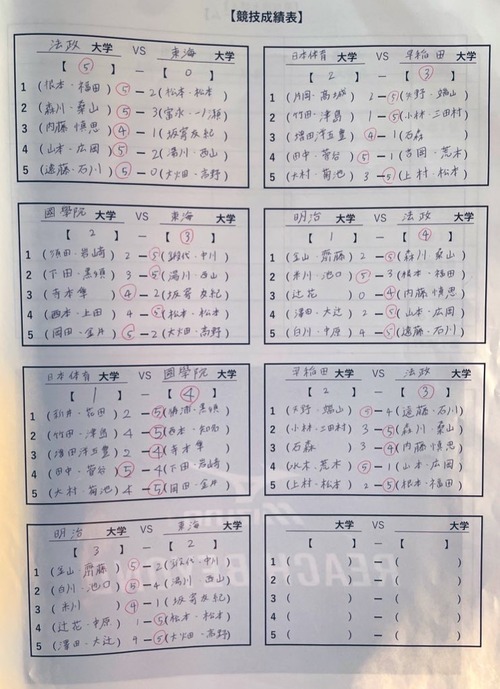 【競技成績表】
法政 大学 VS 東海 大学
【 5 】 — 【 0 】
1 (根本・福田) 5 — 2 (松本・松本)
2 (森川・桑山) 5 — 3
3 (内藤 慎思) 4 — 1 (坂寄友紀)
4 (山本・広岡) 5 — 2 (湯川・西山)
5 (遠藤・石川) 5 — 0 (大畑・高野)
日本体育 大学 VS 早稲田 大学
【 2 】 — 【 3 】
1 2 — 5 (矢野・端山)
2 (竹田・津島) 1 — 5 (小林・三田村)
3 (増田洋五豊) 4 — 1 (石森)
4 (田中・菅谷) 5 — 1 (吉岡・荒木)
5 (大村・菊池) 3 — 5 (上村・松本)
國學院 大学 VS 東海 大学
【 2 】 — 【 3 】
1 (須田・岩崎) 2 — 5
2 (下田・黒須) 3 — 5 (湯川・西山)
3 4 — 2 (坂寄 友紀)
4 (西本・上田) 4 — 5 (松本・松本)
5 (岡田・金井) 5 — 2 (大畑・高野)
明治 大学 VS 法政 大学
【 1 】 — 【 4 】
1 (金山・齋藤) 2 — 5 (森川 桑山)
2 (米川 池口) 5 — 3 (根本・福田)
3 (辻花) 0 — 4 (内藤慎思)
4 (澤田・大辻) 2 — 5 (山本・広岡)
5 (白川・中原) 4 — 5 (遠藤・石川)
日本体育 大学 VS 國學院 大学
【 1 】 — 【 4 】
1 2 — 5
2 (竹田・津島) 4 — 5
3 (増田洋五豊) 2 — 4
4 (田中・菅谷) 5 — 4 (下田・岩崎)
5 (大村 菊池) 4 — 5 (岡田・金井)
早稲田 大学 VS 法政 大学
【 2 】 — 【 3 】
1 (矢野・端山) 5 — 4 (遠藤・石川)
2 (小林・三田村) 3 — 5 (森川・桑山)
3 (石森) 3 — 4 (内藤慎思)
4 5 — 1 (山本・広岡)
5 (上村・松本) 2 — 5 (根本・福田)
明治 大学 VS 東海 大学
【 3 】 — 【 2 】
1 (金山・齋藤) 5 — 2
2 (白川・池口) 5 — 4 (湯川・西山)
3 (米川) 4 — 1 (坂寄友紀)
4 (辻花・中原) 1 — 5 (松本・松本)
5 (澤田・大辻) 4 — 5 (大畑・高野)
大学 VS 大学
【 】 — 【 】
1 ( ) — ( )
2 ( ) — ( )
3 ( ) — ( )
4 ( ) — ( )
5 ( ) — ( )